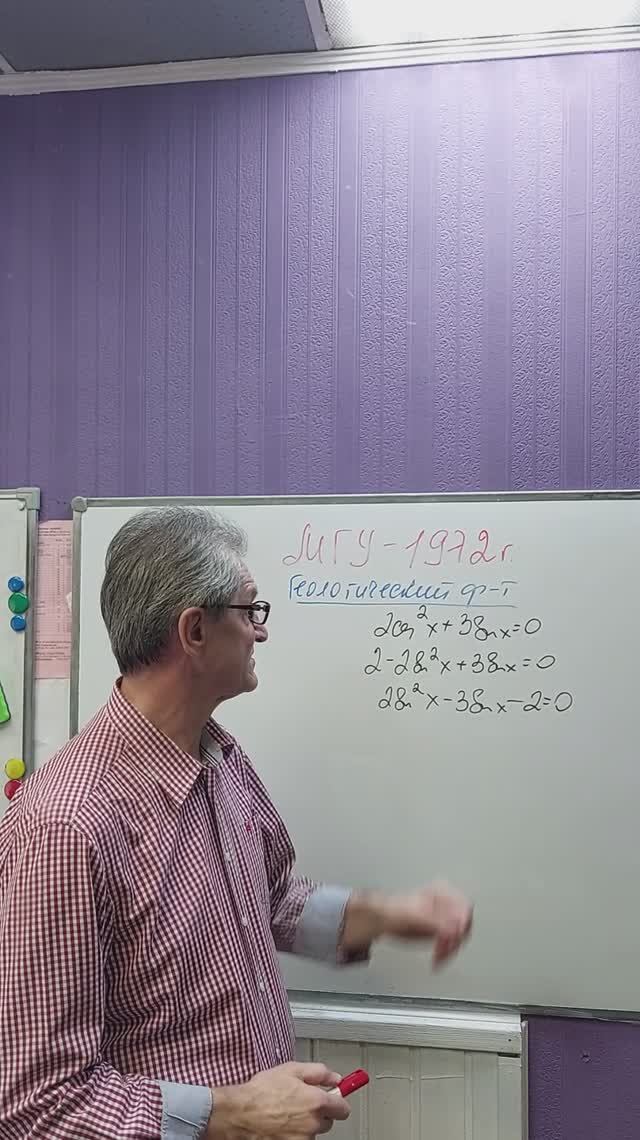 МГУ-1972г.
Геологический ф-т
2cos²x+3sinx=0
2-2sin²x+3sinx=0
2sin²x-3sinx-2=0